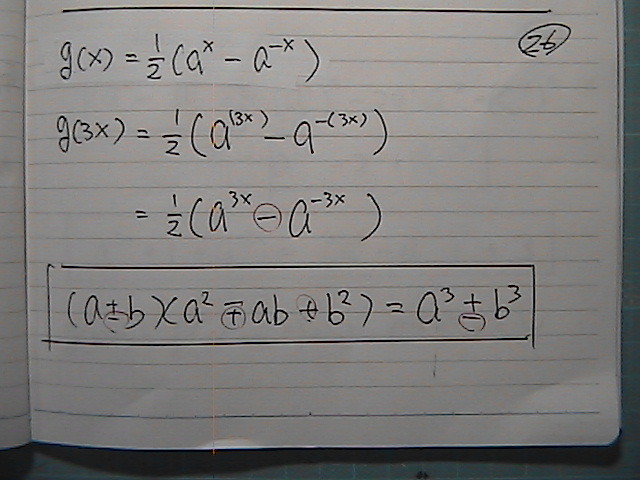 26
g(x) = 1/2 (a^x − a^{-x})
g(3x) = 1/2 (a^{(3x)} − a^{-(3x)})
= 1/2 (a^{3x} − a^{-3x})
(a±b)(a² ∓ ab + b²) = a³ ± b³